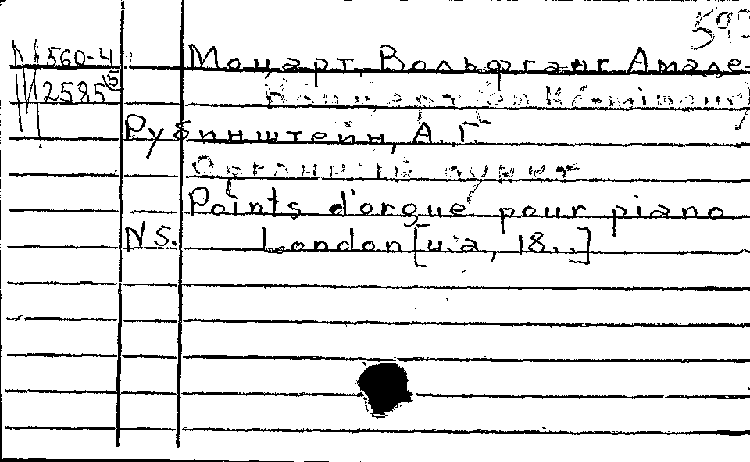 593
560-4 Моцарт, Вольфганг Амаде-
2585
Рубинштейн, А. Г.
Органный пункт
Points d'orgue pour piano
NS. London [u.a, 18..]